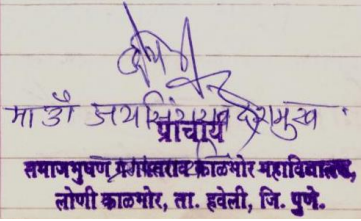 मा डॉ जयसिंगराव देशमुख
प्राचार्य
समाजभुषण गणपतराव काळभोर महाविद्यालय,
लोणी काळभोर, ता. हवेली, जि. पुणे.